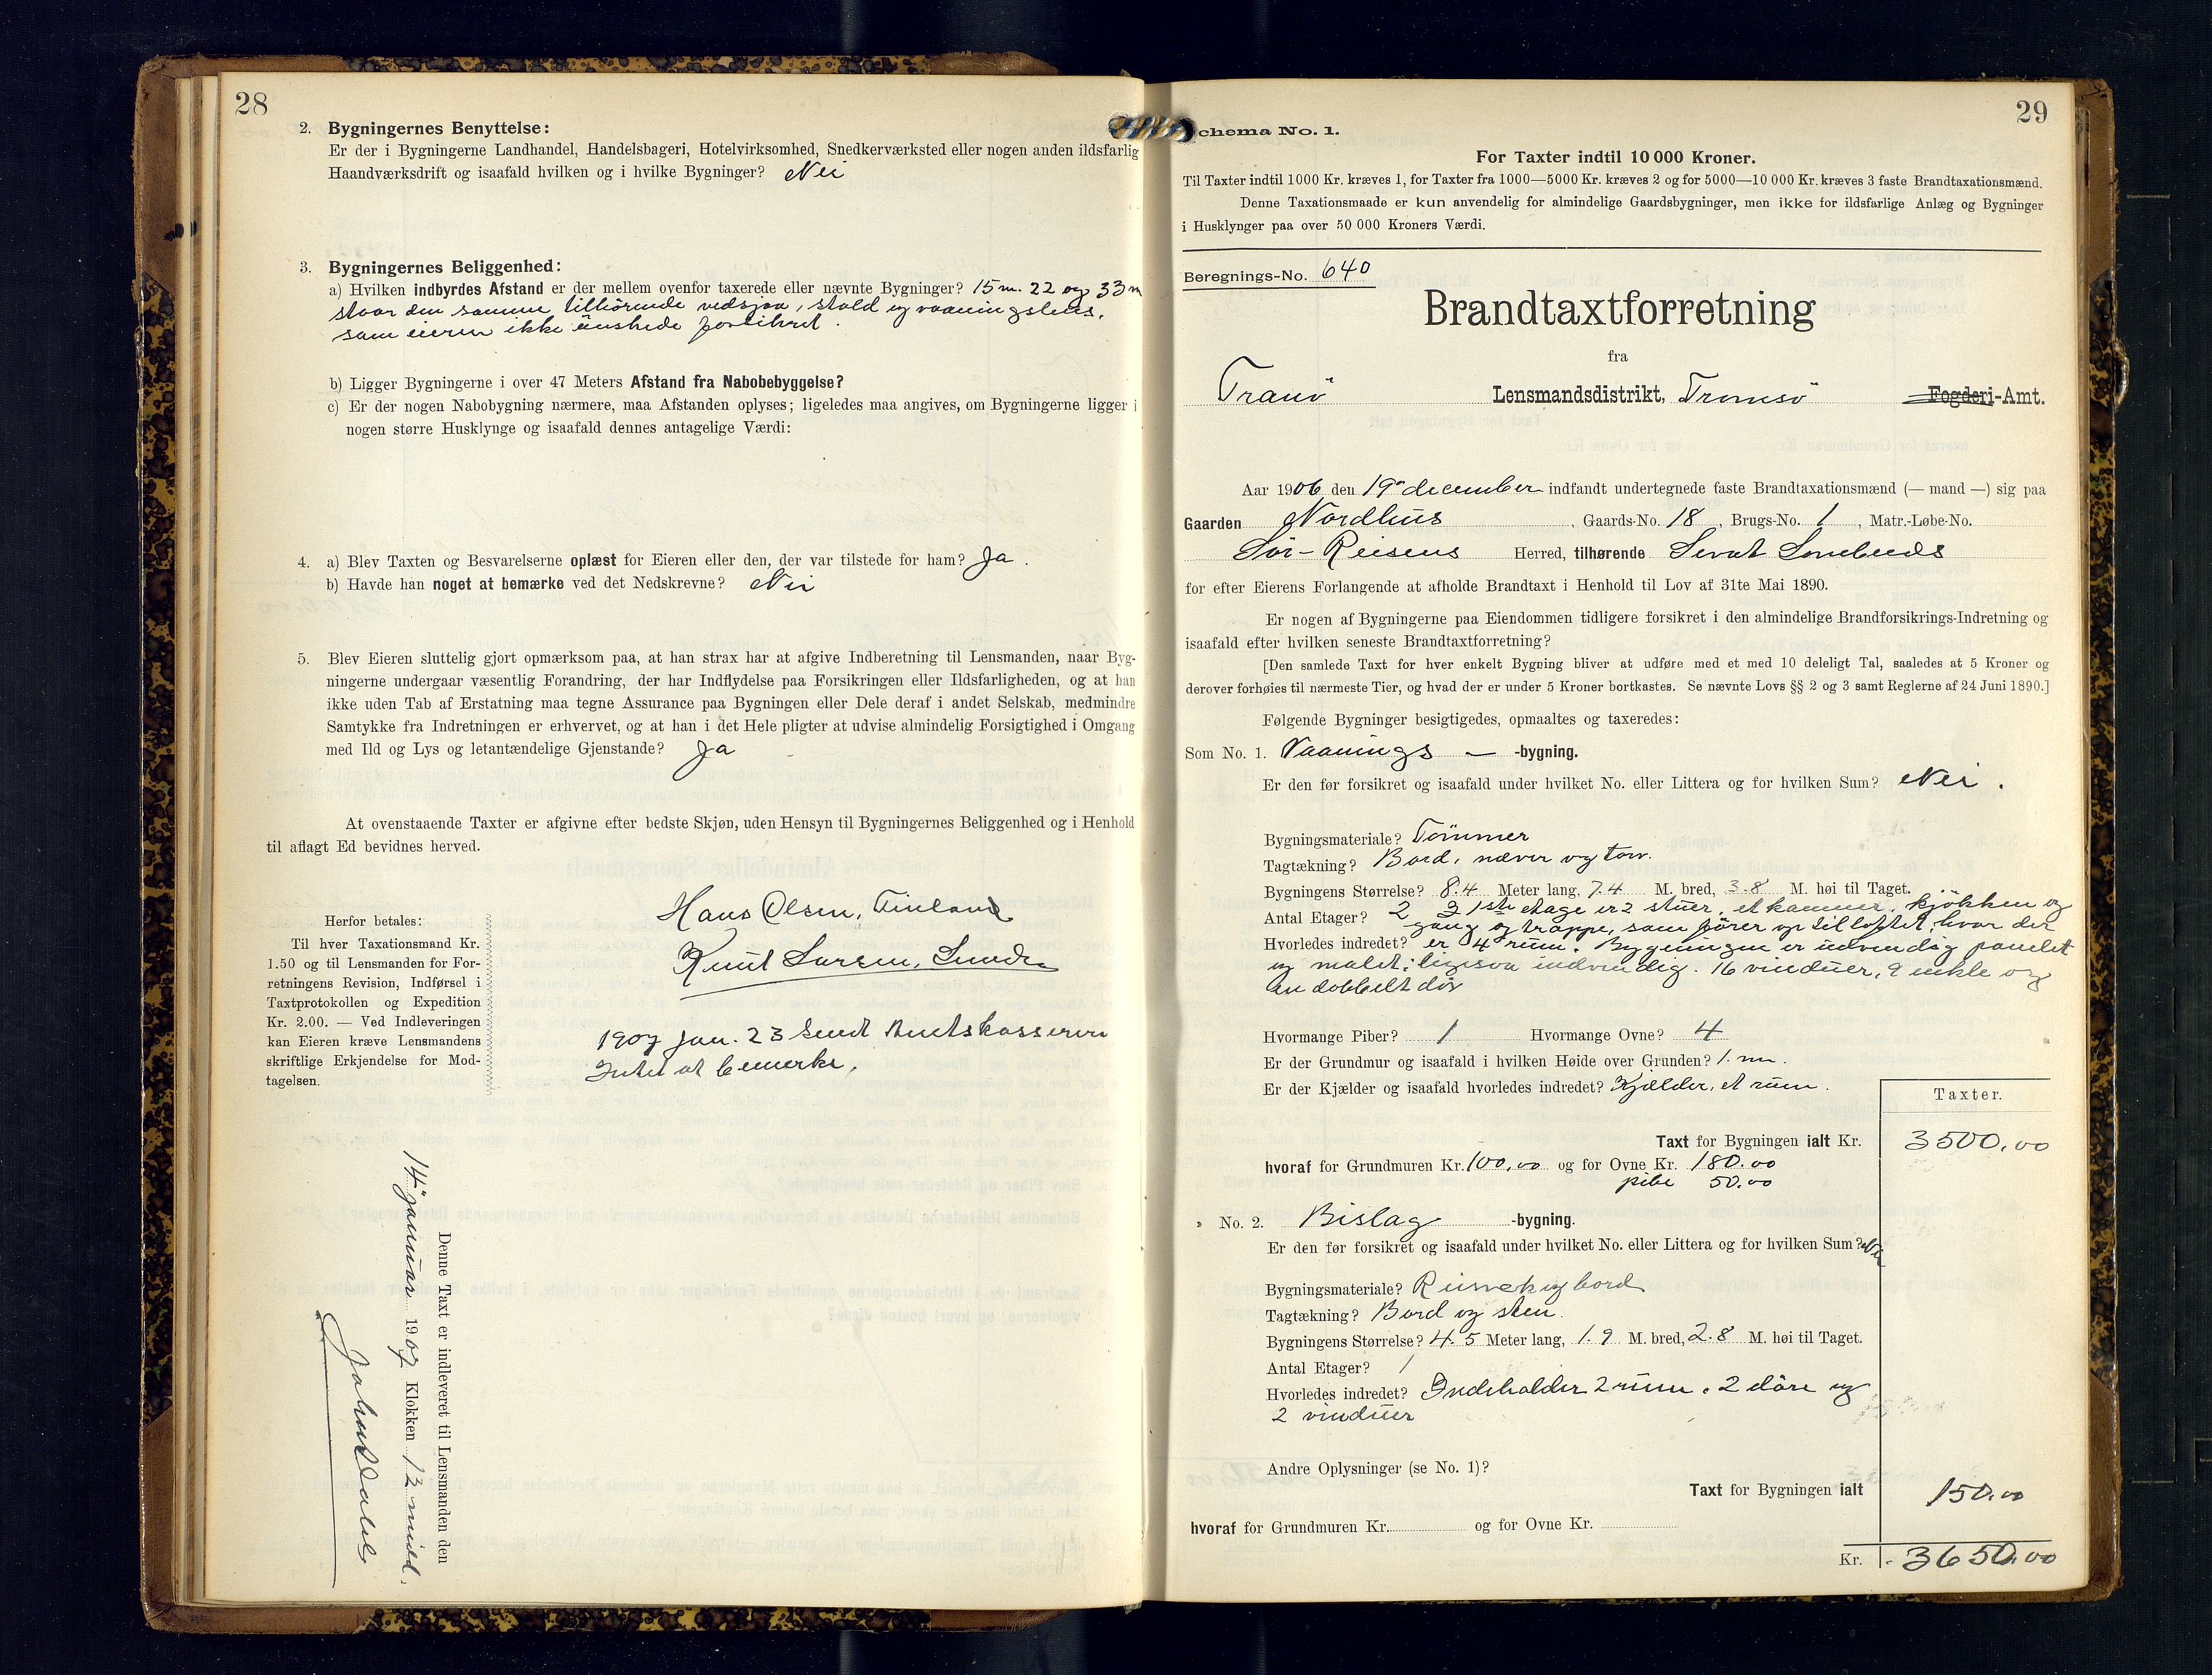 28
2. Bygningernes Benyttelse:
Er der i Bygningerne Landhandel, Handelsbageri, Hotelvirksomhed, Snedkerværksted eller nogen anden ildsfarlig
Haandværksdrift og isaafald hvilken og i hvilke Bygninger? Nei
3. Bygningernes Beliggenhed:
a) Hvilken indbyrdes Afstand er der mellem ovenfor taxerede eller nævnte Bygninger? 15 m. 22 og 33 m
staar den samme tilhörende vedsjaa, stald og vaaningshus,
som eieren ikke önskede forsikret.
b) Ligger Bygningerne i over 47 Meters Afstand fra Nabobebyggelse?
c) Er der nogen Nabobygning nærmere, maa Afstanden oplyses; ligeledes maa angives, om Bygningerne ligger i
nogen större Husklynge og isaafald dennes antagelige Værdi:
4. a) Blev Taxten og Besvarelserne oplæst for Eieren eller den, der var tilstede for ham? Ja.
b) Havde han noget at bemærke ved det Nedskrevne? Nei
5. Blev Eieren sluttelig gjort opmærksom paa, at han strax har at afgive Indberetning til Lensmanden, naar Byg-
ningerne undergaar væsentlig Forandring, der har Indflydelse paa Forsikringen eller Ildsfarligheden, og at han
ikke uden Tab af Erstatning maa tegne Assurance paa Bygningen eller Dele deraf i andet Selskab, medmindre
Samtykke fra Indretningen er erhvervet, og at han i det Hele pligter at udvise almindelig Forsigtighed i Omgang
med Ild og Lys og letantændelige Gjenstande? Ja
At ovenstaaende Taxter er afgivne efter bedste Skjøn, uden Hensyn til Bygningernes Beliggenhed og i Henhold
til aflagt Ed bevidnes herved.
Hans Olsen, Finland
Knut Larsen,
Herfor betales:
Til hver Taxationsmand Kr.
1.50 og til Lensmanden for For-
retningens Revision, Indførsel i
Taxtprotokollen og Expedition
Kr. 2.00. — Ved Indleveringen
kan Eieren kræve Lensmandens
skriftlige Erkjendelse for Mod-
tagelsen.
1907 jan. 23 Sendt Amtskasseren
Intet at bemerke.
Denne Taxt er indleveret til Lensmanden den
14 januar 1907 Klokken 12 midd.
29
Schema No. 1.
For Taxter indtil 10 000 Kroner.
Til Taxter indtil 1000 Kr. kræves 1, for Taxter fra 1000—5000 Kr. kræves 2 og for 5000—10 000 Kr. kræves 3 faste Brandtaxationsmænd.
Denne Taxationsmaade er kun anvendelig for almindelige Gaardsbygninger, men ikke for ildsfarlige Anlæg og Bygninger
i Husklynger paa over 50 000 Kroners Værdi.
Beregnings-No. 640
Brandtaxtforretning
fra
Tranö Lensmandsdistrikt, Tromsö Fogderi-Amt.
Aar 1906 den 19de december indfandt undertegnede faste Brandtaxationsmænd (— mand —) sig paa
Gaarden Nordhus, Gaards-No. 18, Brugs-No. 1, Matr.-Løbe-No.
Sör-Reisens Herred, tilhørende
for efter Eierens Forlangende at afholde Brandtaxt i Henhold til Lov af 31te Mai 1890.
Er nogen af Bygningerne paa Eiendommen tidligere forsikret i den almindelige Brandforsikrings-Indretning og
isaafald efter hvilken seneste Brandtaxtforretning?
[Den samlede Taxt for hver enkelt Bygning bliver at udføre med et med 10 deleligt Tal, saaledes at 5 Kroner og
derover forhøies til nærmeste Tier, og hvad der er under 5 Kroner bortkastes. Se nævnte Lovs §§ 2 og 3 samt Reglerne af 24 Juni 1890.]
Følgende Bygninger besigtigedes, opmaaltes og taxeredes:
Som No. 1. Vaanings — -bygning.
Er den før forsikret og isaafald under hvilket No. eller Littera og for hvilken Sum? Nei.
Bygningsmateriale? Tömmer
Tagtækning? Bord, næver og torv.
Bygningens Størrelse? 8.4 Meter lang, 7.4 M. bred, 3.8 M. høi til Taget.
Antal Etager? 2 I 1ste etage er 2 stuer, et kammer, kjökken og
gang og trappe, som förer op til loftet, hvor der
Hvorledes indredet? er 4 rum. Bygningen er udvendig panelet
og malet; ligesaa indvendig. 16 vinduer, 9 enkle og
en dobbelt dör
Hvormange Piber? 1 Hvormange Ovne? 4
Er der Grundmur og isaafald i hvilken Høide over Grunden? 1 m.
Er der Kjælder og isaafald hvorledes indredet? Kjælder, et rum.
Taxter.
Taxt for Bygningen ialt Kr. 3500,00
hvoraf for Grundmuren Kr. 100,00 og for Ovne Kr. 180.00
pibe 50.00
" No. 2. Bislag -bygning.
Er den før forsikret og isaafald under hvilket No. eller Littera og for hvilken Sum? Nei
Bygningsmateriale? Reisverk og bord
Tagtækning? Bord og sten.
Bygningens Størrelse? 4.5 Meter lang, 1.9 M. bred, 2.8 M. høi til Taget.
Antal Etager? 1
Hvorledes indredet? Indeholder 2 rum. 2 döre og
2 vinduer
Andre Oplysninger (se No. 1)?
Taxt for Bygningen ialt 150.00
hvoraf for Grundmuren Kr. og for Ovne Kr.
Kr. 3650.00